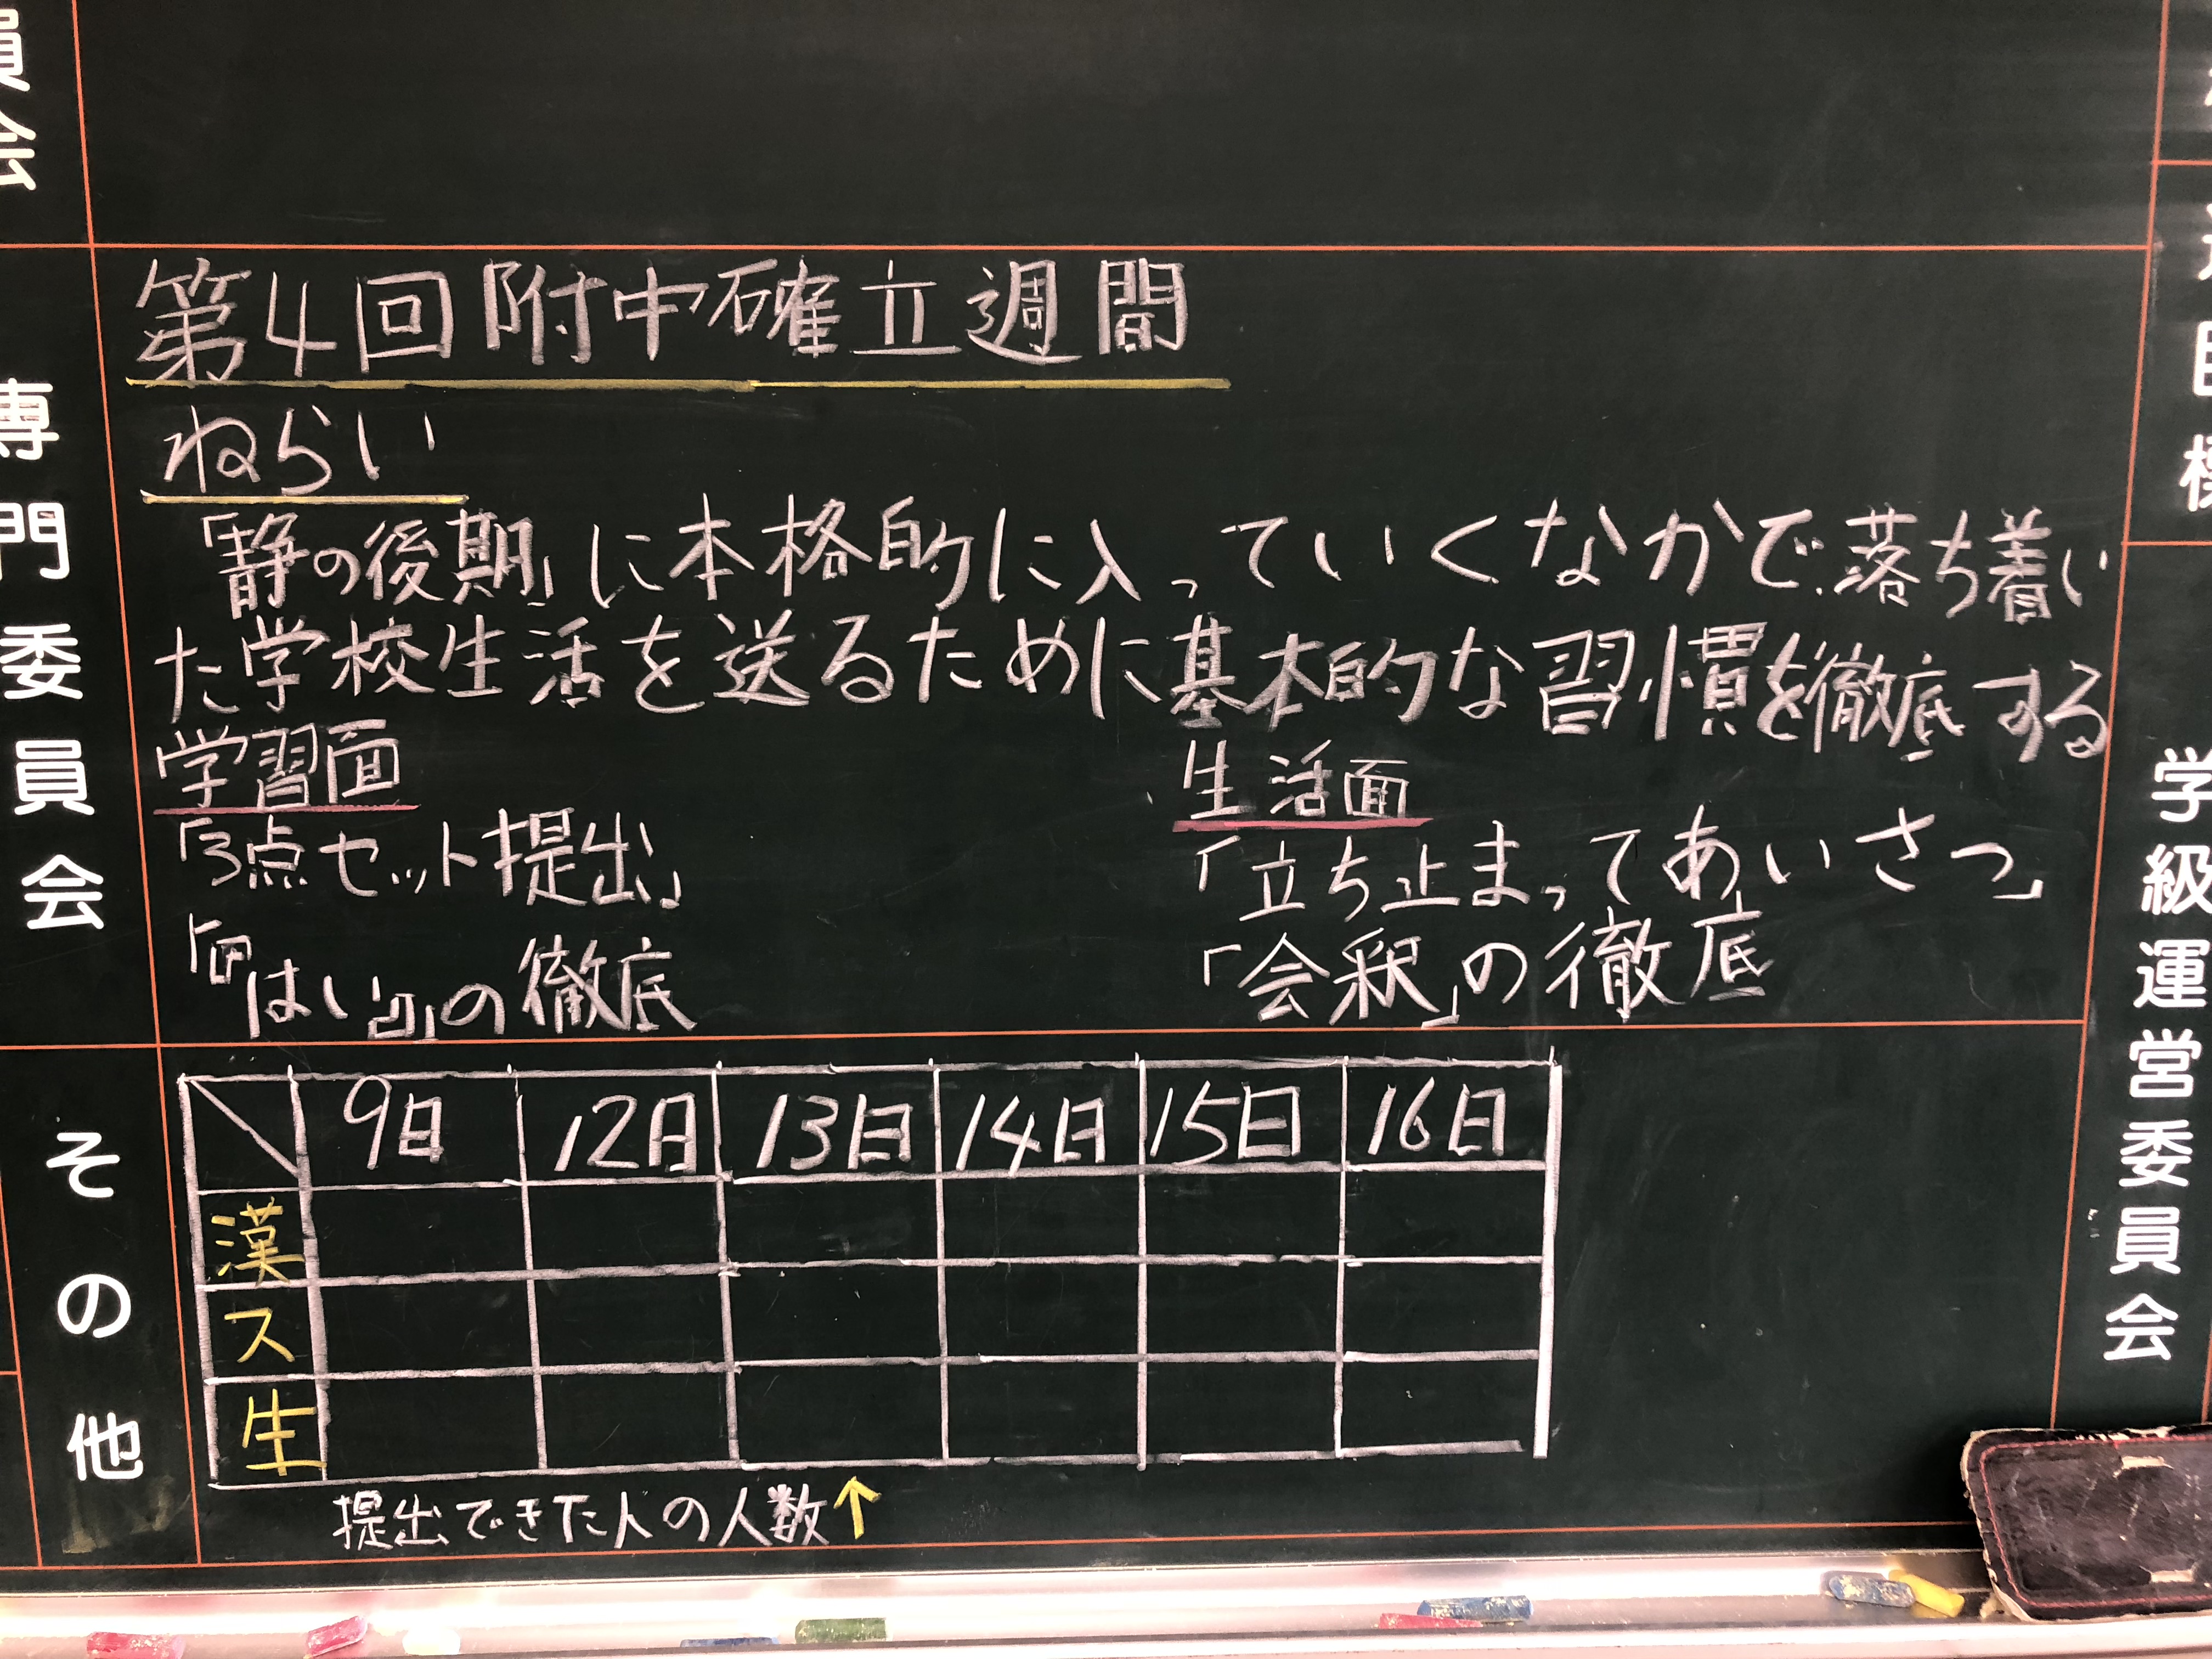 員会
専門委員会
第4回附中確立週間
ねらい
「静の後期」に本格的に入っていくなかで、落ち着い
た学校生活を送るために基本的な習慣を徹底する
学習面
「3点セット提出」
「『はい』」の徹底
生活面
「立ち止まってあいさつ」
「会釈」の徹底
その他
9日 12日 13日 14日 15日 16日
漢
ス
生
提出できた人の人数↑
学級運営委員会